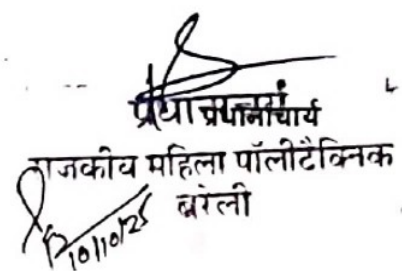 प्रधानाचार्य
राजकीय महिला पॉलीटैक्निक
बरेली
10/10/25